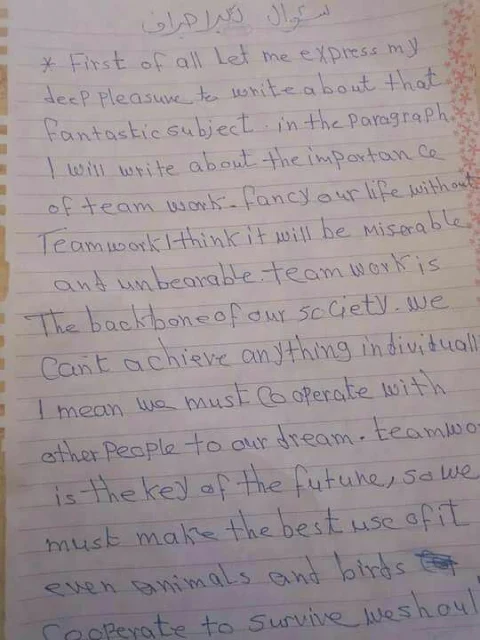 سؤال البراجراف
* First of all Let me express my
deep pleasure to write about that
fantastic subject. in the paragraph
I will write about the importance
of team work. fancy our life without
Teamwork I think it will be miserable
and unbearable. team work is
The backbone of our society. we
Can't achieve anything individuall
I mean we must Cooperate with
other people to our dream. teamwo
is the key of the future, so we
must make the best use of it
even animals and birds
Cooperate to survive we shoul